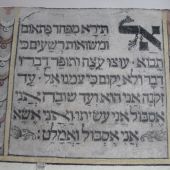 אל תירא מפחד פתאום
ומשואת רשעים כי
תבוא · עוצו עצה ותופר דברו
דבר ולא יקום כי עמנו אל · ועד
זקנה אני הוא ועד שיבה אני
אסבול אני עשיתי ואני אשא
ואני אסבול ואמלט :